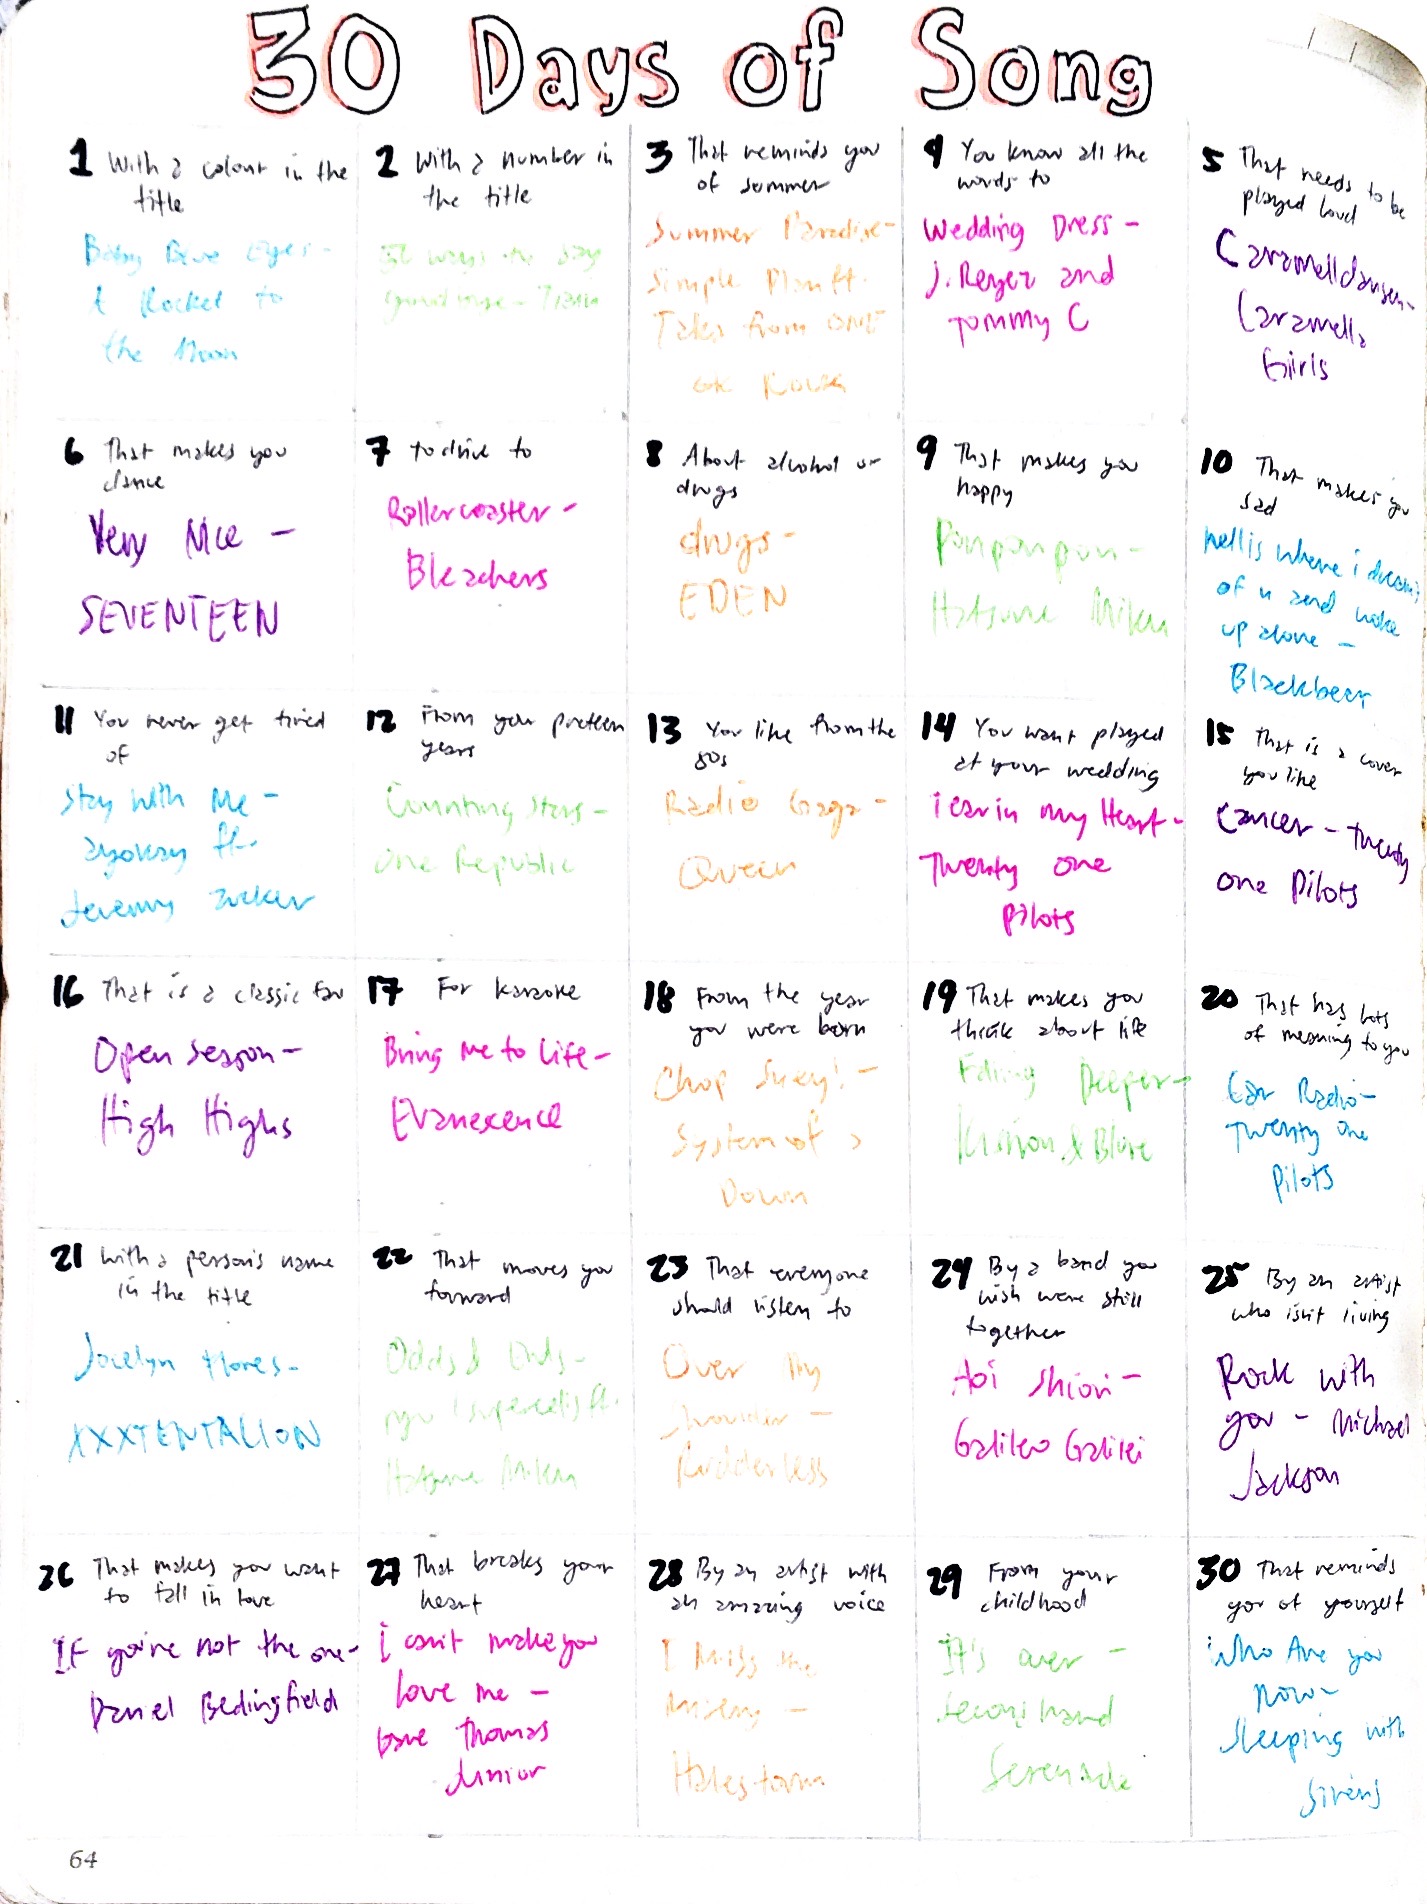 30 Days of Song
1 With a colour in the
title
Baby Blue Eyes -
A Rocket to
the Moon
2 With a number in
the title
50 ways to say
goodbye - Train
3 That reminds you
of summer
Summer Paradise -
Simple Plan ft.
Taka from ONE
OK ROCK
4 You know all the
words to
Wedding Dress -
J. Reyez and
Tommy C
5 That needs to be
played loud
Caramelldansen -
Caramella
Girls
6 That makes you
dance
Very Nice -
SEVENTEEN
7 to drive to
Rollercoaster -
Bleachers
8 About alcohol or
drugs
drugs -
EDEN
9 That makes you
happy
Ponponpon -
Hatsune Miku
10 That makes you
sad
hell is where i dream
of u and wake
up alone -
Blackbear
11 You never get tired
of
Stay With Me -
ayokay ft.
Jeremy Zucker
12 From your preteen
years
Counting Stars -
One Republic
13 You like from the
80s
Radio Gaga -
Queen
14 You want played
at your wedding
Tear in my Heart -
Twenty one
pilots
15 That is a cover
you like
Cancer - twenty
one Pilots
16 That is a classic fav
Open Season -
High Highs
17 For karaoke
Bring Me to Life -
Evanescence
18 From the year
you were born
Chop Suey! -
System of a
Down
19 That makes you
think about life
Falling Deeper -
& Blure
20 That has lots
of meaning to you
Car Radio -
Twenty One
Pilots
21 With a person's name
in the title
Jocelyn Flores -
XXXTENTACION
22 That moves you
forward
Odds & Ends -
ryo (supercell) ft.
Hatsune Miku
23 That everyone
should listen to
Over My
Shoulder -
Rudderless
24 By a band you
wish were still
together
Aoi Shiori -
Galileo Galilei
25 By an artist
who isn't living
Rock with
you - Michael
Jackson
26 That makes you want
to fall in love
If you're not the one -
Daniel Bedingfield
27 That breaks your
heart
I can't make you
love me -
Dave Thomas
Junior
28 By an artist with
an amazing voice
I Miss the
Misery -
Halestorm
29 From your
childhood
It's over -
Secondhand
Serenade
30 That reminds
you of yourself
Who Are you
Now -
Sleeping with
Sirens
64